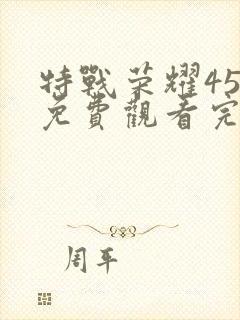 特戰荣耀45
免費觀看完
周平